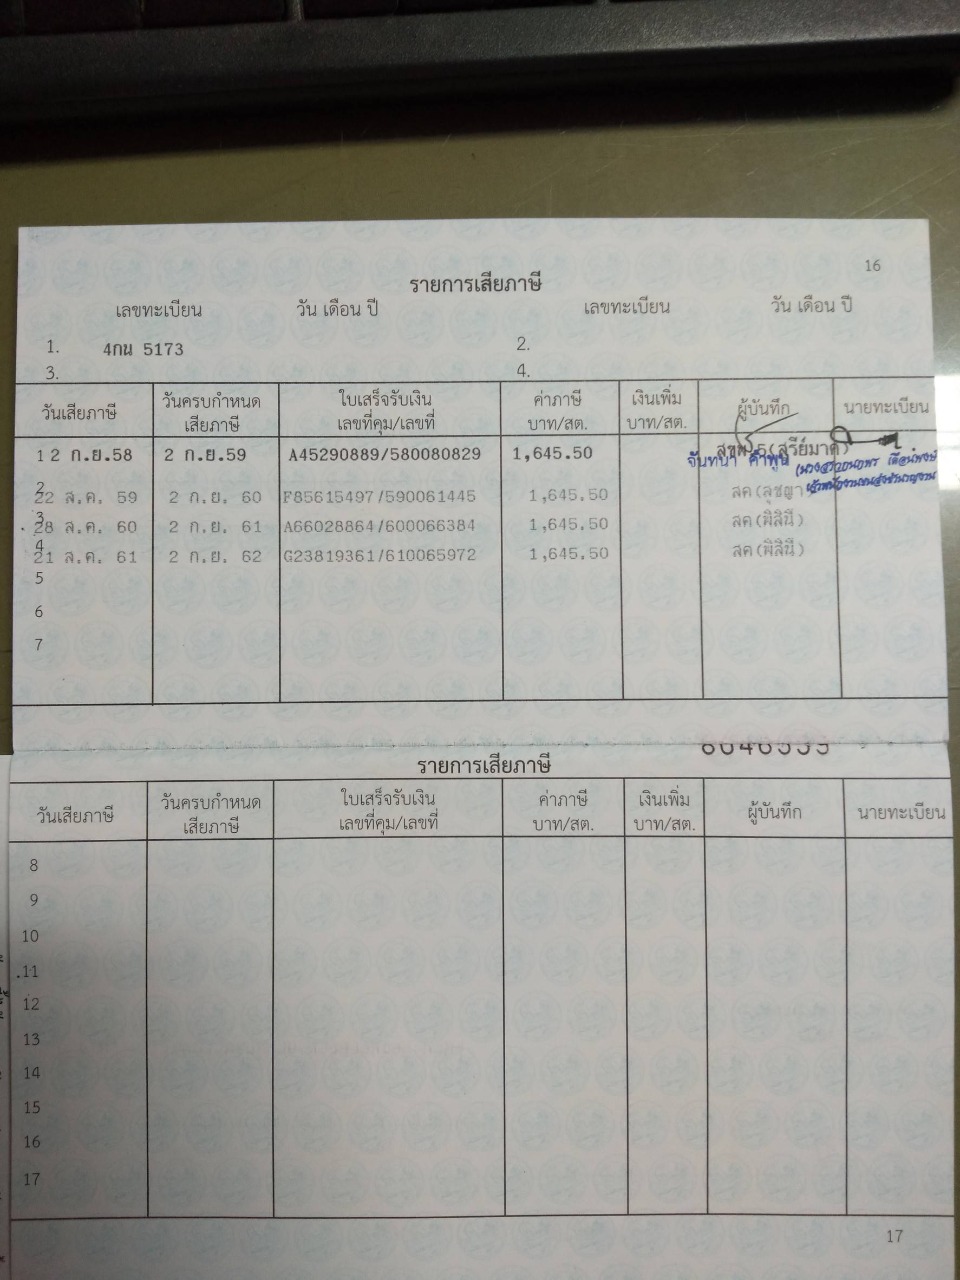 16
รายการเสียภาษี
เลขทะเบียน วัน เดือน ปี เลขทะเบียน วัน เดือน ปี
1. 4กน 5173 2.
3. 4.
วันเสียภาษี วันครบกำหนดเสียภาษี ใบเสร็จรับเงิน เลขที่คุม/เลขที่ ค่าภาษี บาท/สต. เงินเพิ่ม บาท/สต. ผู้บันทึก นายทะเบียน
1 2 ก.ย.58 2 ก.ย.59 A45290889/580080829 1,645.50 (สุรีย์มาศ)
จันทนา คำพูน
2 22 ส.ค. 59 2 ก.ย. 60 F85615497/590061445 1,645.50 สค(สุชญา
3 28 ส.ค. 60 2 ก.ย. 61 A66028864/600066384 1,645.50 สค(พิสินี)
4 21 ส.ค. 61 2 ก.ย. 62 G23819361/610065972 1,645.50 สค(พิสินี)
5
6
7
รายการเสียภาษี
วันเสียภาษี วันครบกำหนดเสียภาษี ใบเสร็จรับเงิน เลขที่คุม/เลขที่ ค่าภาษี บาท/สต. เงินเพิ่ม บาท/สต. ผู้บันทึก นายทะเบียน
8
9
10
11
12
13
14
15
16
17
17